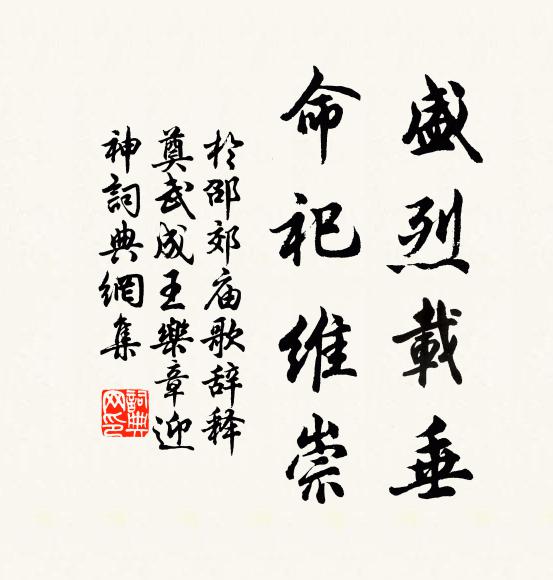 盛烈載垂
命祀維崇
於邵郊庙歌辞释
奠武成王樂章迎
神詞典網集
詞典網印